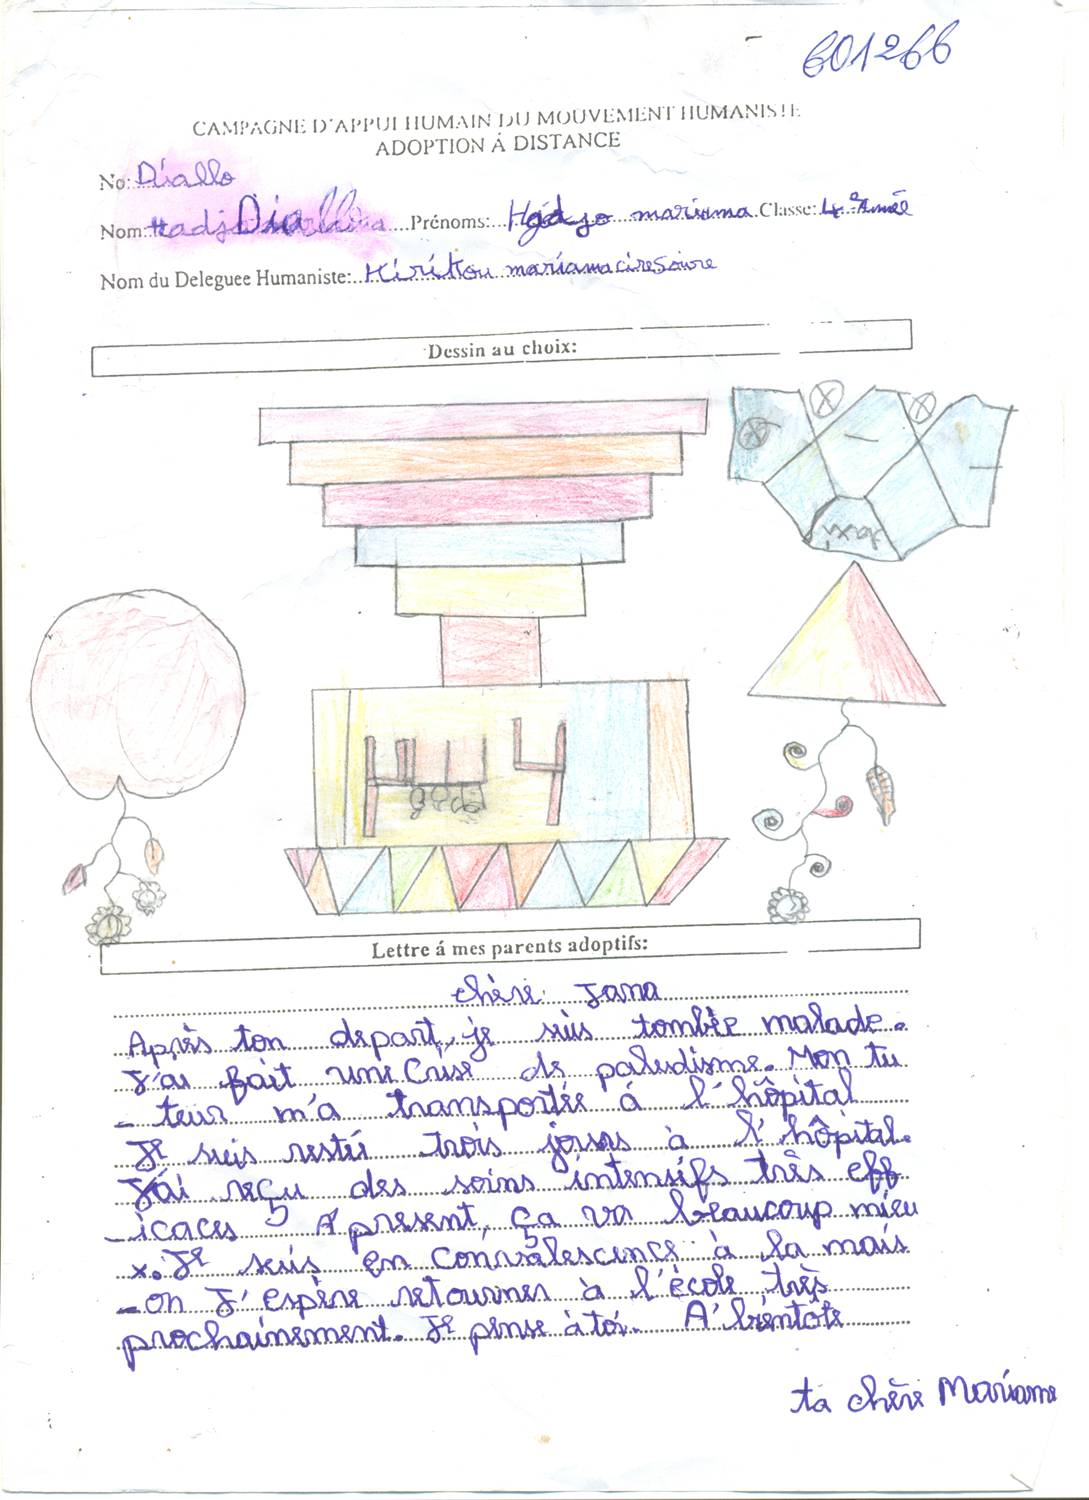 601266
CAMPAGNE D'APPUI HUMAIN DU MOUVEMENT HUMANISTE
ADOPTION Á DISTANCE
No: Diallo
Nom: Diallo Prénoms: Hadjo mariama Classe: 4e Année
Nom du Deleguee Humaniste: Kirikou mariama cire
Dessin au choix:
taxi
Lettre á mes parents adoptifs:
chère Jana
Après ton depart, je suis tombée malade.
J'ai fait une Crise de paludisme. Mon tu
- teur m'a transportée á l'hôpital
Je suis resteé trois jours à l'hôpital.
J'ai reçu des soins intensifs très eff
- icaces A present, ça va beaucoup mieu
x. Je suis en Convalescence à la mais
- on J'espère retourner à l'école très
prochainement. Je pense à toi. A' bientôt
ta chère Mariame